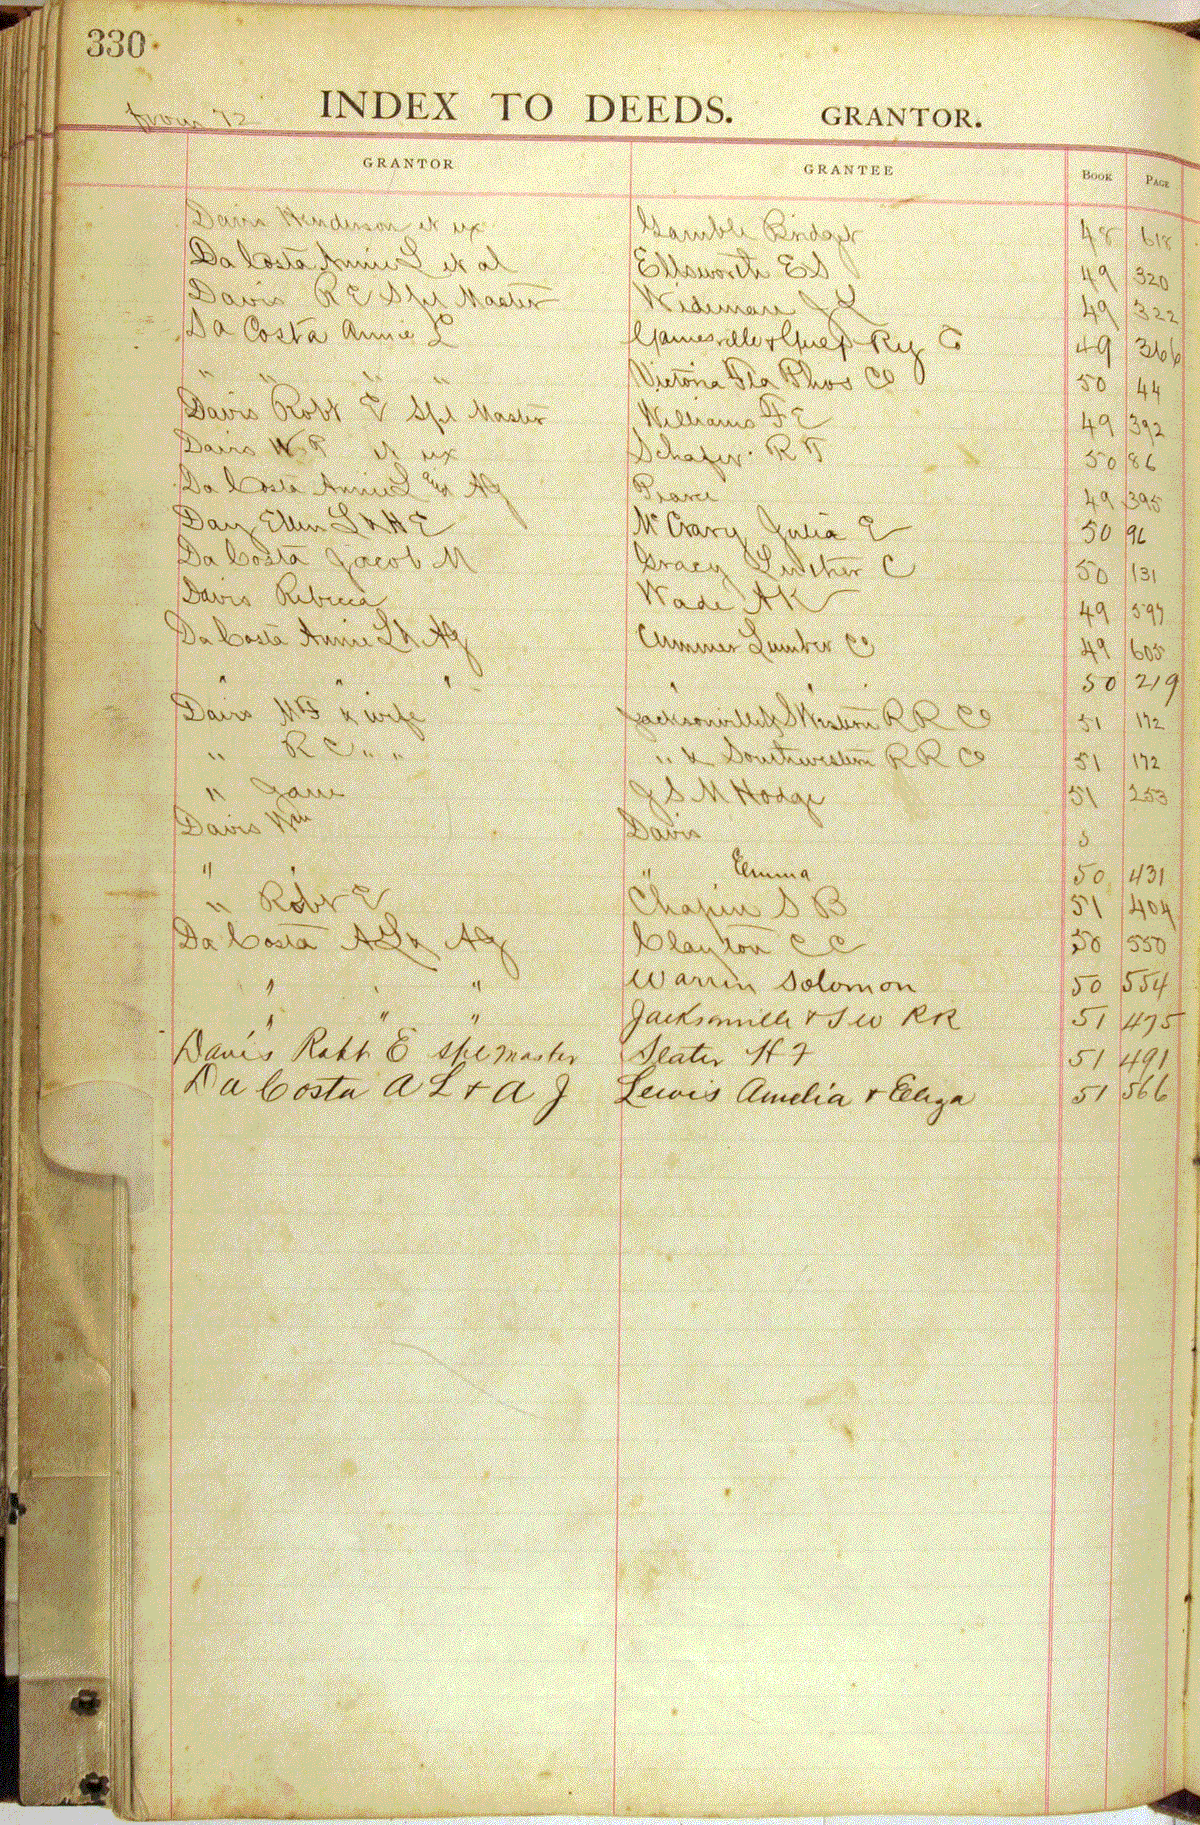 330
from 72
INDEX TO DEEDS. GRANTOR.
GRANTOR GRANTEE BOOK PAGE
Davis Henderson et ux Gamble Bridget 48 618
Da Costa Annie L et al Ellsworth E S 49 320
Davis R E Spl Master Wideman J L 49 322
Da Costa Annie L Gainesville & Gulf Ry Co 49 366
" " " " Victoria Fla Phos Co 50 44
Davis Robt E Spl Master Williams F E 49 392
Davis W F et ux Schafer R T 50 86
Da Costa Annie L AG Pearce 49 395
Day Ellen L & H E McCrary Julia E 50 96
Da Costa Jacob M Gracy Luther C 50 131
Davis Rebecca Wade A K 49 597
Da Costa Annie L & AG Cummer Lumber Co 49 605
" " " " " 50 219
Davis W F & wife Jacksonville & S Western R R Co 51 172
" R C " " " & Southwestern R R Co 51 172
" Jane J S M Hodge 51 253
Davis Wm Davis 5
" " Emma 50 431
" Robt E Chapin S B 51 404
Da Costa A L & AG Clayton C C 50 550
" " " Warren Solomon 50 554
" " " Jacksonville & S W RR 51 475
Davis Robt E Spl master Slater H F 51 491
Da Costa A L & A J Lewis Amelia & Eliza 51 566